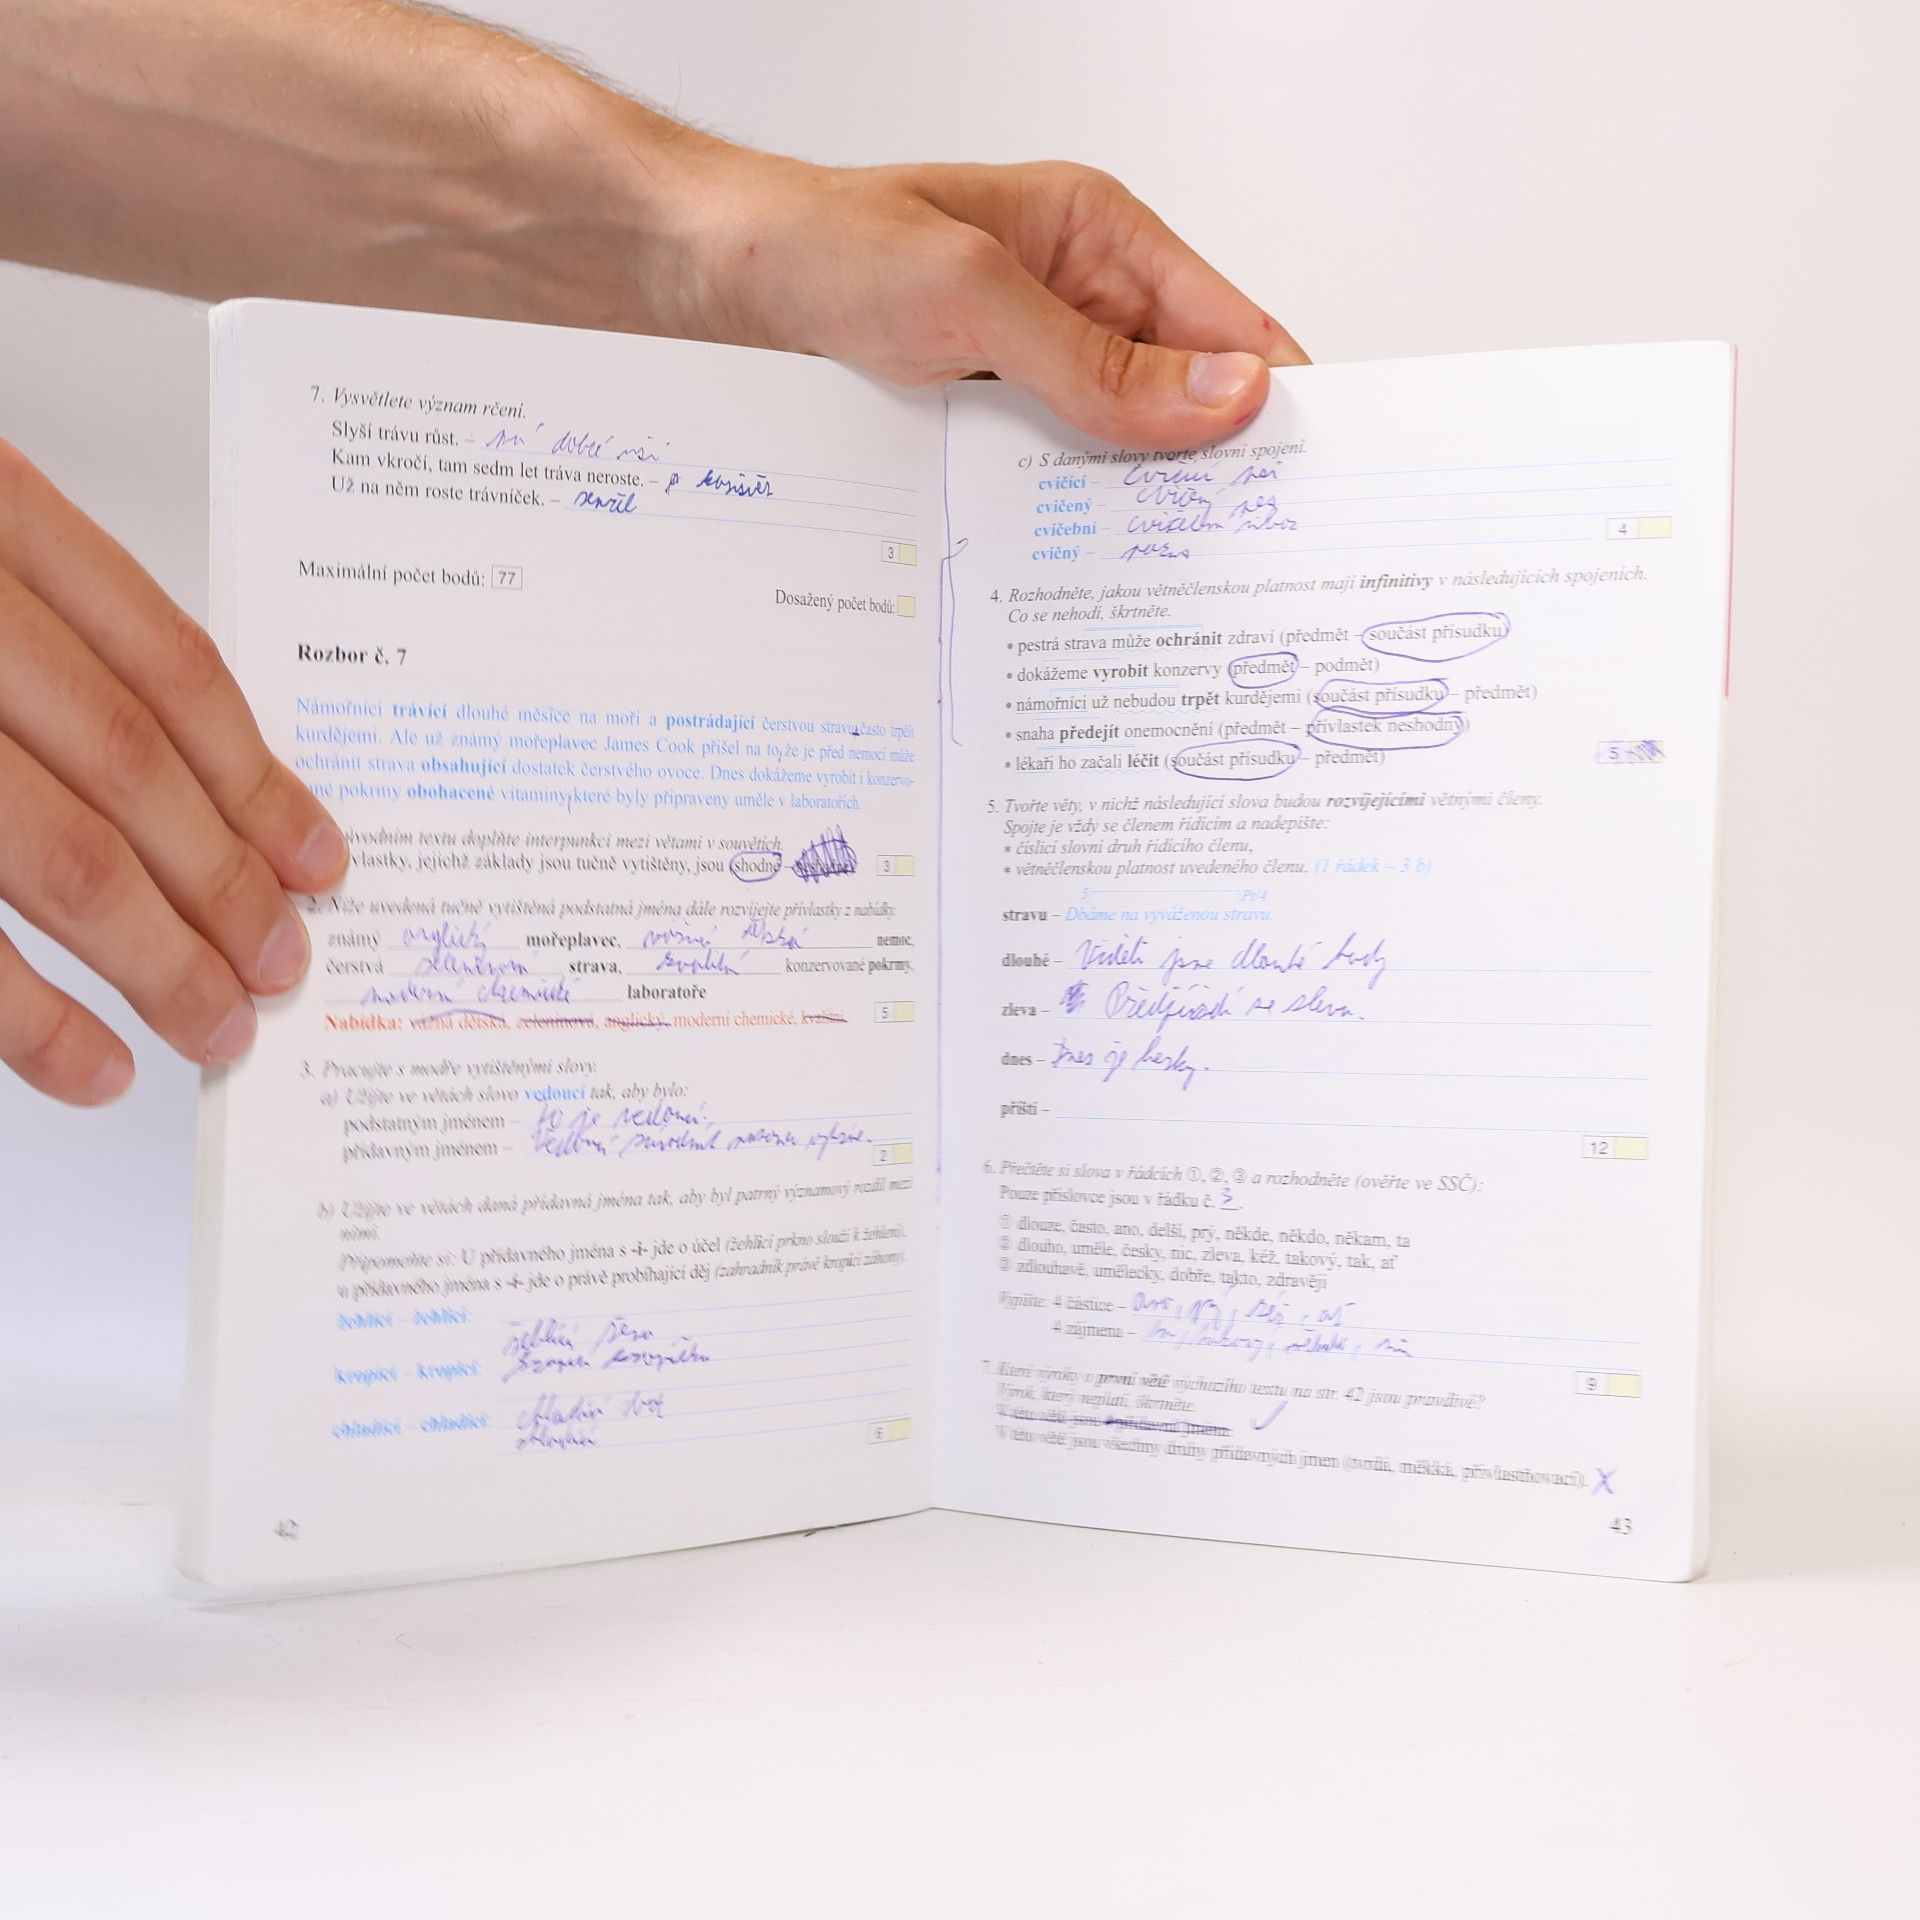 7. Vysvětlete význam rčení.
Slyší trávu růst. – má dobré uši
Kam vkročí, tam sedm let tráva neroste. –
Už na něm roste trávníček. – zemřel
3
Maximální počet bodů: 77
Dosažený počet bodů:
Rozbor č. 7
Námořníci trávící dlouhé měsíce na moři a postrádající čerstvou stravu, často trpěli
kurdějemi. Ale už známý mořeplavec James Cook přišel na to, že je před nemocí může
ochránit strava obsahující dostatek čerstvého ovoce. Dnes dokážeme vyrobit i konzervo-
né pokrmy obohacené vitaminy, které byly připraveny uměle v laboratořích.
úvodním textu doplňte interpunkci mezi větami v souvětích.
vlastky, jejichž základy jsou tučně vytištěny, jsou (shodné –
3
2. Níže uvedená tučně vytištěná podstatná jména dále rozvíjejte přívlastky z nabídky.
známý anglický mořeplavec, vážná dětská nemoc,
čerstvá zeleninová strava, kvalitní konzervované pokrmy,
moderní chemické laboratoře
Nabídka: vážná dětská, zeleninová, anglický, moderní chemické, kvalitní
5
3. Pracujte s modře vytištěnými slovy.
a) Užijte ve větách slovo vedoucí tak, aby bylo:
podstatným jménem – to je vedoucí.
přídavným jménem – Vedoucí závodník
2
b) Užijte ve větách daná přídavná jména tak, aby byl patrný významový rozdíl mezi
nimi.
Připomeňte si: U přídavného jména s -i- jde o účel (žehlicí prkno slouží k žehlení),
u přídavného jména s -í- jde o právě probíhající děj (zahradník právě kropící záhony).
žehlicí – žehlící: žehlící žena
kropicí – kropící:
chladicí – chladící:
6
42
c) S danými slovy tvořte slovní spojení.
cvičící – cvičící pes
cvičený – cvičený pes
cvičební – cvičební
cvičný –
4
4. Rozhodněte, jakou větněčlenskou platnost mají infinitivy v následujících spojeních.
Co se nehodí, škrtněte.
• pestrá strava může ochránit zdraví (předmět – součást přísudku)
• dokážeme vyrobit konzervy (předmět – podmět)
• námořníci už nebudou trpět kurdějemi (součást přísudku – předmět)
• snaha předejít onemocnění (předmět – přívlastek neshodný)
• lékaři ho začali léčit (součást přísudku – předmět)
5
5. Tvořte věty, v nichž následující slova budou rozvíjejícími větnými členy.
Spojte je vždy se členem řídícím a nadepište:
* číslicí slovní druh řídícího členu,
* větněčlenskou platnost uvedeného členu. (1 řádek – 3 b)
5 Pt/4
stravu – Dbáme na vyváženou stravu.
dlouhé – Viděli jsme dlouhé hady
zleva – Předjíždí se zleva.
dnes – Dnes je hezky.
příští –
12
6. Přečtěte si slova v řádcích ①, ②, ③ a rozhodněte (ověřte ve SSČ):
Pouze příslovce jsou v řádku č. 3.
① dlouze, často, ano, delší, prý, někde, někdo, někam, ta
② dlouho, uměle, česky, nic, zleva, kéž, takový, tak, ať
③ zdlouhavě, umělecky, dobře, takto, zdravěji
Vypište: 4 částice – ano, prý, kéž, ať
4 zájmena – ta, takový, někdo, nic
9
7. Které výroky o první větě výchozího textu na str. 42 jsou pravdivé?
Výrok, který neplatí, škrtněte.
V této větě jsou 4 přídavná jména.
V této větě jsou všechny druhy přídavných jmen (tvrdá, měkká, přivlastňovací). X
43